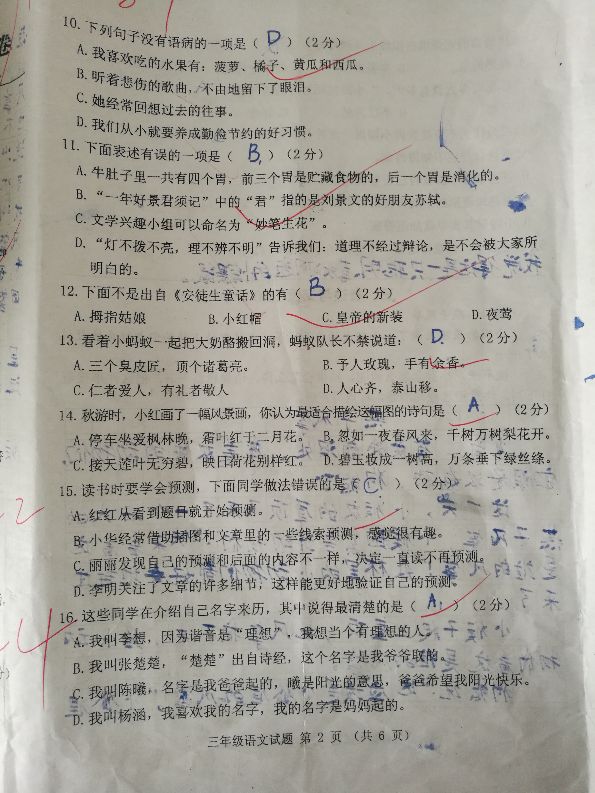 10. 下列句子没有语病的一项是（ D ）（2分）
A. 我喜欢吃的水果有：菠萝、橘子、黄瓜和西瓜。
B. 听着悲伤的歌曲，不由地留下了眼泪。
C. 她经常回想过去的往事。
D. 我们从小就要养成勤俭节约的好习惯。
11. 下面表述有误的一项是（ B ）（2分）
A. 牛肚子里一共有四个胃，前三个胃是贮藏食物的，后一个胃是消化的。
B. “一年好景君须记”中的“君”指的是刘景文的好朋友苏轼。
C. 文学兴趣小组可以命名为“妙笔生花”。
D. “灯不拨不亮，理不辨不明”告诉我们：道理不经过辩论，是不会被大家所
明白的。
12. 下面不是出自《安徒生童话》的有（ B ）（2分）
A. 拇指姑娘 B. 小红帽 C. 皇帝的新装 D. 夜莺
13. 看着小蚂蚁一起把大奶酪搬回洞，蚂蚁队长不禁说道：（ D ）（2分）
A. 三个臭皮匠，顶个诸葛亮。 B. 予人玫瑰，手有余香。
C. 仁者爱人，有礼者敬人 D. 人心齐，泰山移。
14. 秋游时，小红画了一幅风景画，你认为最适合描绘这幅图的诗句是（ A ）（2分）
A. 停车坐爱枫林晚，霜叶红于二月花。 B. 忽如一夜春风来，千树万树梨花开。
C. 接天莲叶无穷碧，映日荷花别样红。 D. 碧玉妆成一树高，万条垂下绿丝绦。
15. 读书时要学会预测，下面同学做法错误的是（ C ）（2分）
A. 红红从看到题目就开始预测。
B. 小华经常借助插图和文章里的一些线索预测，感觉很有趣。
C. 丽丽发现自己的预测和后面的内容不一样，决定一直读不再预测。
D. 李明关注了文章的许多细节，这样能更好地验证自己的预测。
16. 这些同学在介绍自己名字来历，其中说得最清楚的是（ A ）（2分）
A. 我叫李想，因为谐音是“理想”，我想当个有理想的人。
B. 我叫张楚楚，“楚楚”出自诗经，这个名字是我爷爷取的。
C. 我叫陈曦，名字是我爸爸起的，曦是阳光的意思，爸爸希望我阳光快乐。
D. 我叫杨涵，我喜欢我的名字，我的名字是妈妈起的。
三年级语文试题 第 2 页 （共 6 页）